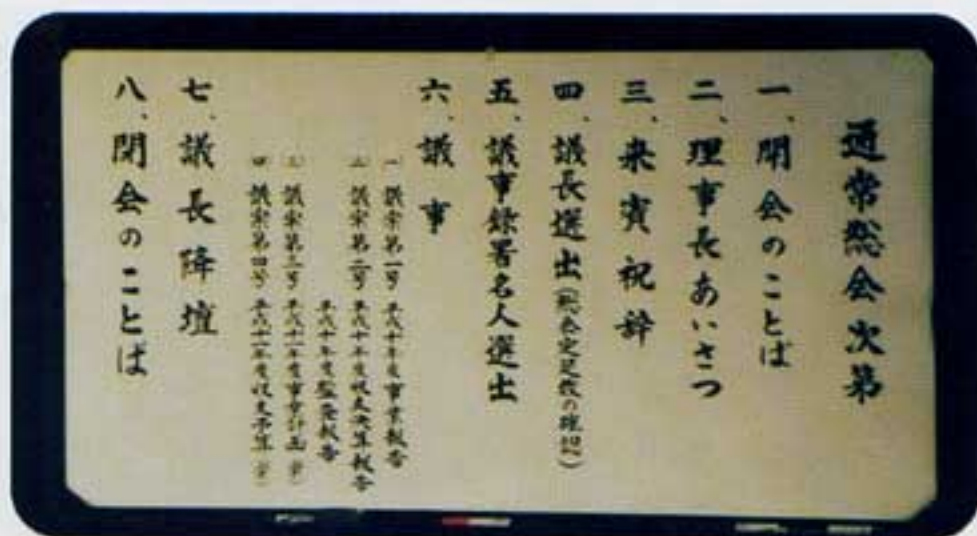 通常総会次第
一、開会のことば
二、理事長あいさつ
三、来賓祝辞
四、議長選出（総会定足数の確認）
五、議事録署名人選出
六、議事
一 議案第一号 平成十年度事業報告
二 議案第二号 平成十年度収支決算報告
平成十年度監査報告
三 議案第三号 平成十一年度事業計画（案）
四 議案第四号 平成十一年度収支予算（案）
七、議長降壇
八、閉会のことば